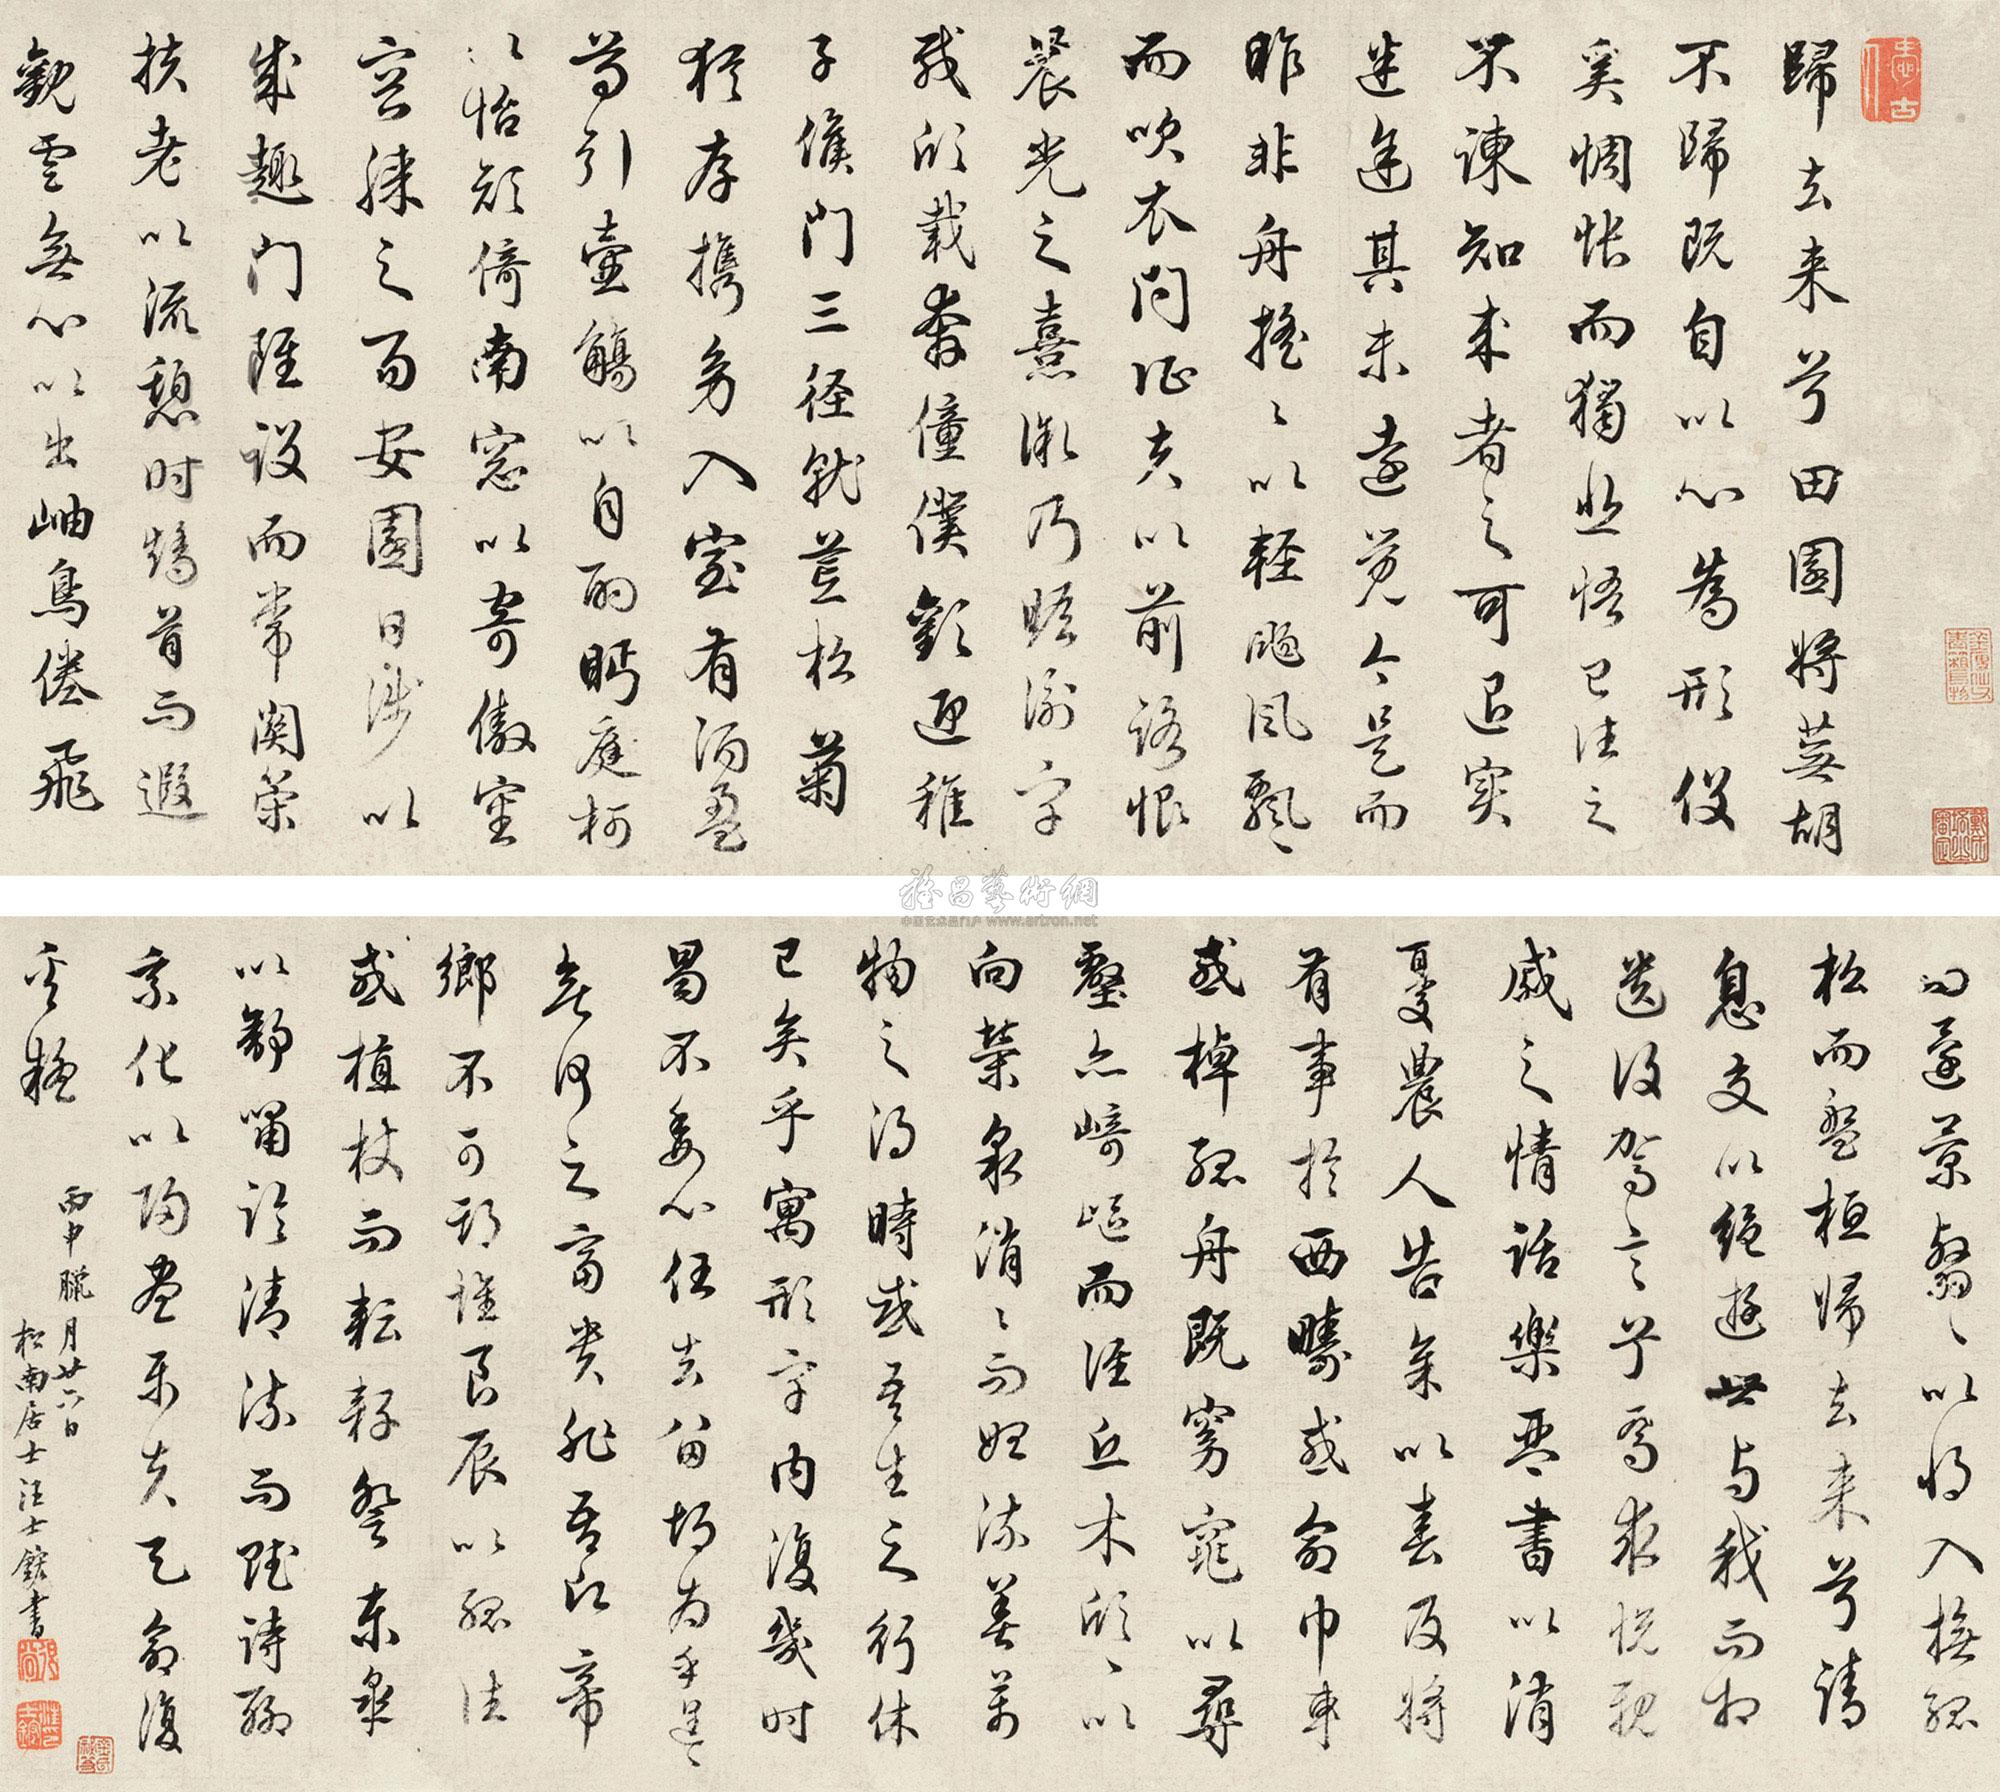 歸去来兮田園將蕪胡
不歸既自以心為形役
奚惆悵而獨悲悟已往之
不諫知来者之可追实
迷途其未遠覺今是而
昨非舟搖〻以輕颺風飄〻
而吹衣問征夫以前路恨
晨光之熹微乃瞻衡宇
載欣載奔僮僕歡迎稚
子候門三径就荒松菊
猶存携幼入室有酒盈
尊引壺觴以自酌眄庭柯
以怡顏倚南窓以寄傲審
容膝之易安園日涉以
成趣门雖设而常関策
扶老以流憩时矯首而遐
觀雲無心以出岫鳥倦飛
而還景翳〻以將入撫孤
松而盤桓歸去来兮請
息交以絕遊世与我而相
遗復駕言兮焉求悦親
戚之情話樂琴書以消
憂農人告余以春及將
有事於西疇或命巾車
或棹孤舟既窈窕以尋
壑亦崎嶇而經丘木欣〻以
向榮泉涓〻而始流羡萬
物之得時感吾生之行休
已矣乎寓形宇内復幾时
曷不委心任去留胡为乎遑〻
兮何之富贵非吾願帝
鄉不可期懷良辰以孤往
或植杖而耘耔登東皋
以舒嘯臨清流而賦詩聊
乘化以歸盡樂夫天命復
奚疑
丙申臘月廿六日
松南居士汪士鋐書
雅昌藝術網
中国艺术品门户 www.artron.net